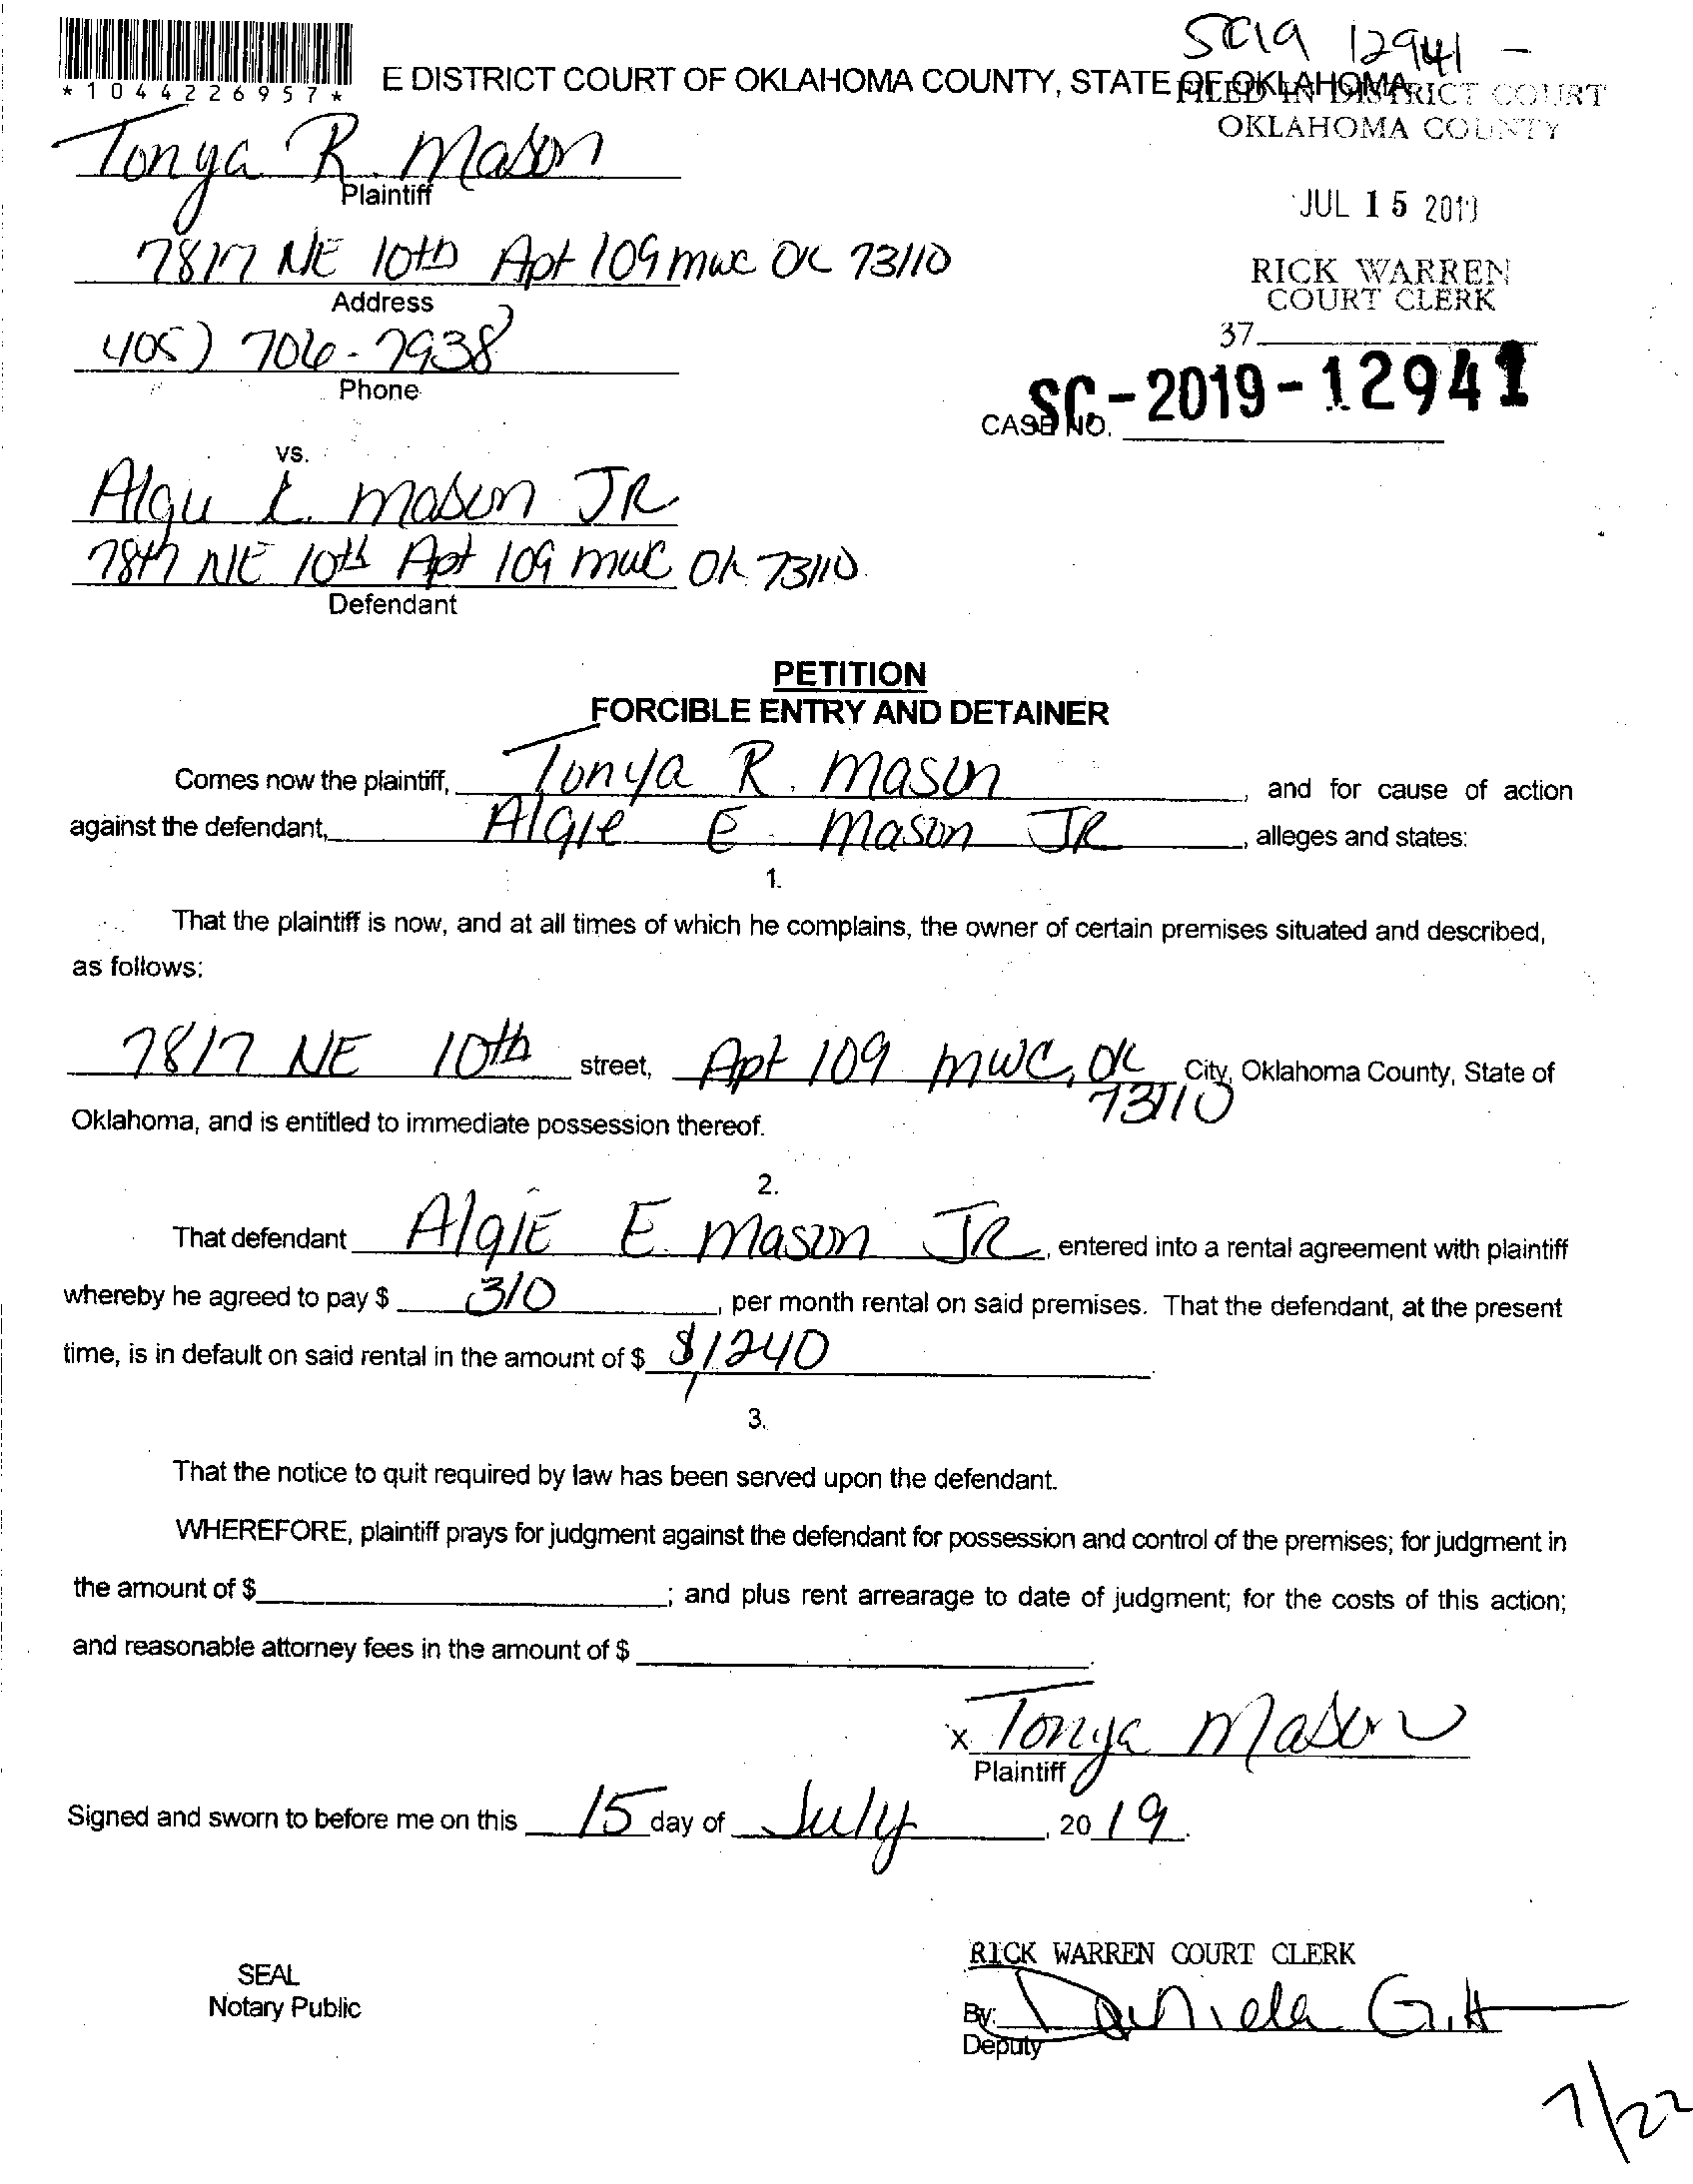 SC19 12941 -
*1044226957*
E DISTRICT COURT OF OKLAHOMA COUNTY, STATE OF OKLAHOMA
FILED IN DISTRICT COURT
OKLAHOMA COUNTY
Tonya R. Mason
Plaintiff
JUL 15 2019
7817 NE 10th Apt 109 mwc OK 73110
Address
RICK WARREN
COURT CLERK
405) 706-7938
Phone
37
CASE NO. SC-2019-12941
vs.
Algie E. mason JR
7817 NE 10th Apt 109 mwc Ok 73110
Defendant
PETITION
FORCIBLE ENTRY AND DETAINER
Comes now the plaintiff, Tonya R. Mason, and for cause of action
against the defendant, Algie E. Mason JR, alleges and states:
1.
That the plaintiff is now, and at all times of which he complains, the owner of certain premises situated and described,
as follows:
7817 NE 10th street, Apt 109 mwc, OK 73110 City, Oklahoma County, State of
Oklahoma, and is entitled to immediate possession thereof.
2.
That defendant AlgiE E. Mason JR, entered into a rental agreement with plaintiff
whereby he agreed to pay $ 310, per month rental on said premises. That the defendant, at the present
time, is in default on said rental in the amount of $ $1,240
3.
That the notice to quit required by law has been served upon the defendant.
WHEREFORE, plaintiff prays for judgment against the defendant for possession and control of the premises; for judgment in
the amount of $ ; and plus rent arrearage to date of judgment; for the costs of this action;
and reasonable attorney fees in the amount of $ .
x Tonya Mason
Plaintiff
Signed and sworn to before me on this 15 day of July, 2019.
SEAL
Notary Public
RICK WARREN COURT CLERK
By: Daniela
Deputy
7/22